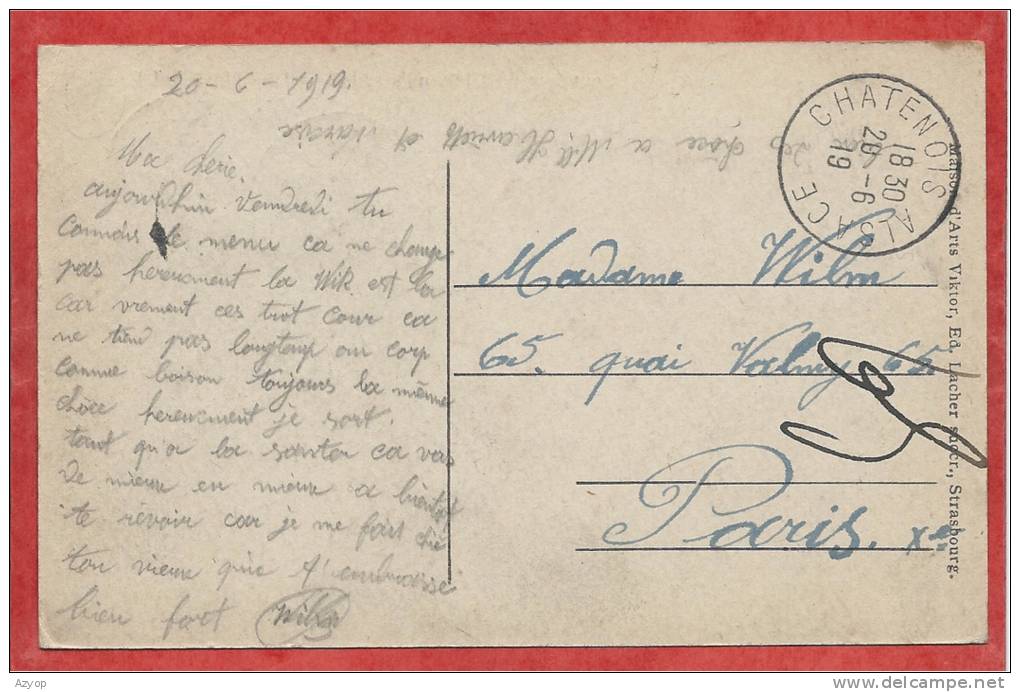 20-6-1919.
Ma cherie.
aujourdhui Vendredi tu
connais le menu ca ne change
pas hereucment la Wik est la
car vrement ces trot cour ca
ne tien pas longtemp au corp
comme boison toujours la même
chôce hereucment je sort.
tant qu'a la santer ca vas
de mieux en mieux a bientot
te revoir car je me fait chié
ton vieux qui t'embrasse
bien fort Wilm
chôce a Mll Henriette et Narcise
CHATENOIS
18 30
20 -6
19
ALSACE
Madame Wilm
65. quai Valmy 65.
Paris. Xe
Maison d'Arts Viktor, Ed. Lacher succr., Strasbourg.
Azyop
delcampe.net